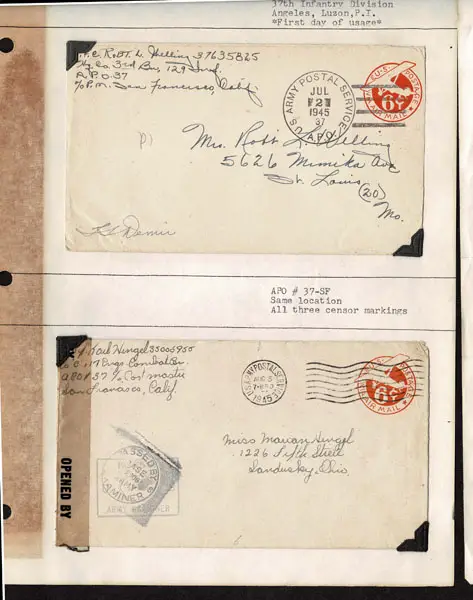 37th Infantry Division
Angeles, Luzon, P.I.
*First day of usage*
Robt L Helling 37635825
Hq. Co. 3rd Bn, 129 Inf.
A.P.O. 37
c/o P.M. San Francisco, Calif
U.S. ARMY POSTAL SERVICE
JUL
2
1945
37
A.P.O.
U.S. POSTAGE
6¢
VIA AIR MAIL
Mrs. Robt L. Helling
5626 Mimika Ave
St. Louis (20)
Mo.
APO # 37-SF
Same location
All three censor markings
Karl Hingel 35005955
Co C, 117 Engr. Combat Bn.
APO 37 c/o Postmaster
San Francisco, Calif.
U.S. ARMY POSTAL SERVICE
AUG 3
1945
U.S. POSTAGE
6¢
VIA AIR MAIL
Miss Marian Hingel
1226 Fifth Street
Sandusky, Ohio
OPENED BY
PASSED BY
EXAMINER
ARMY EXAMINER